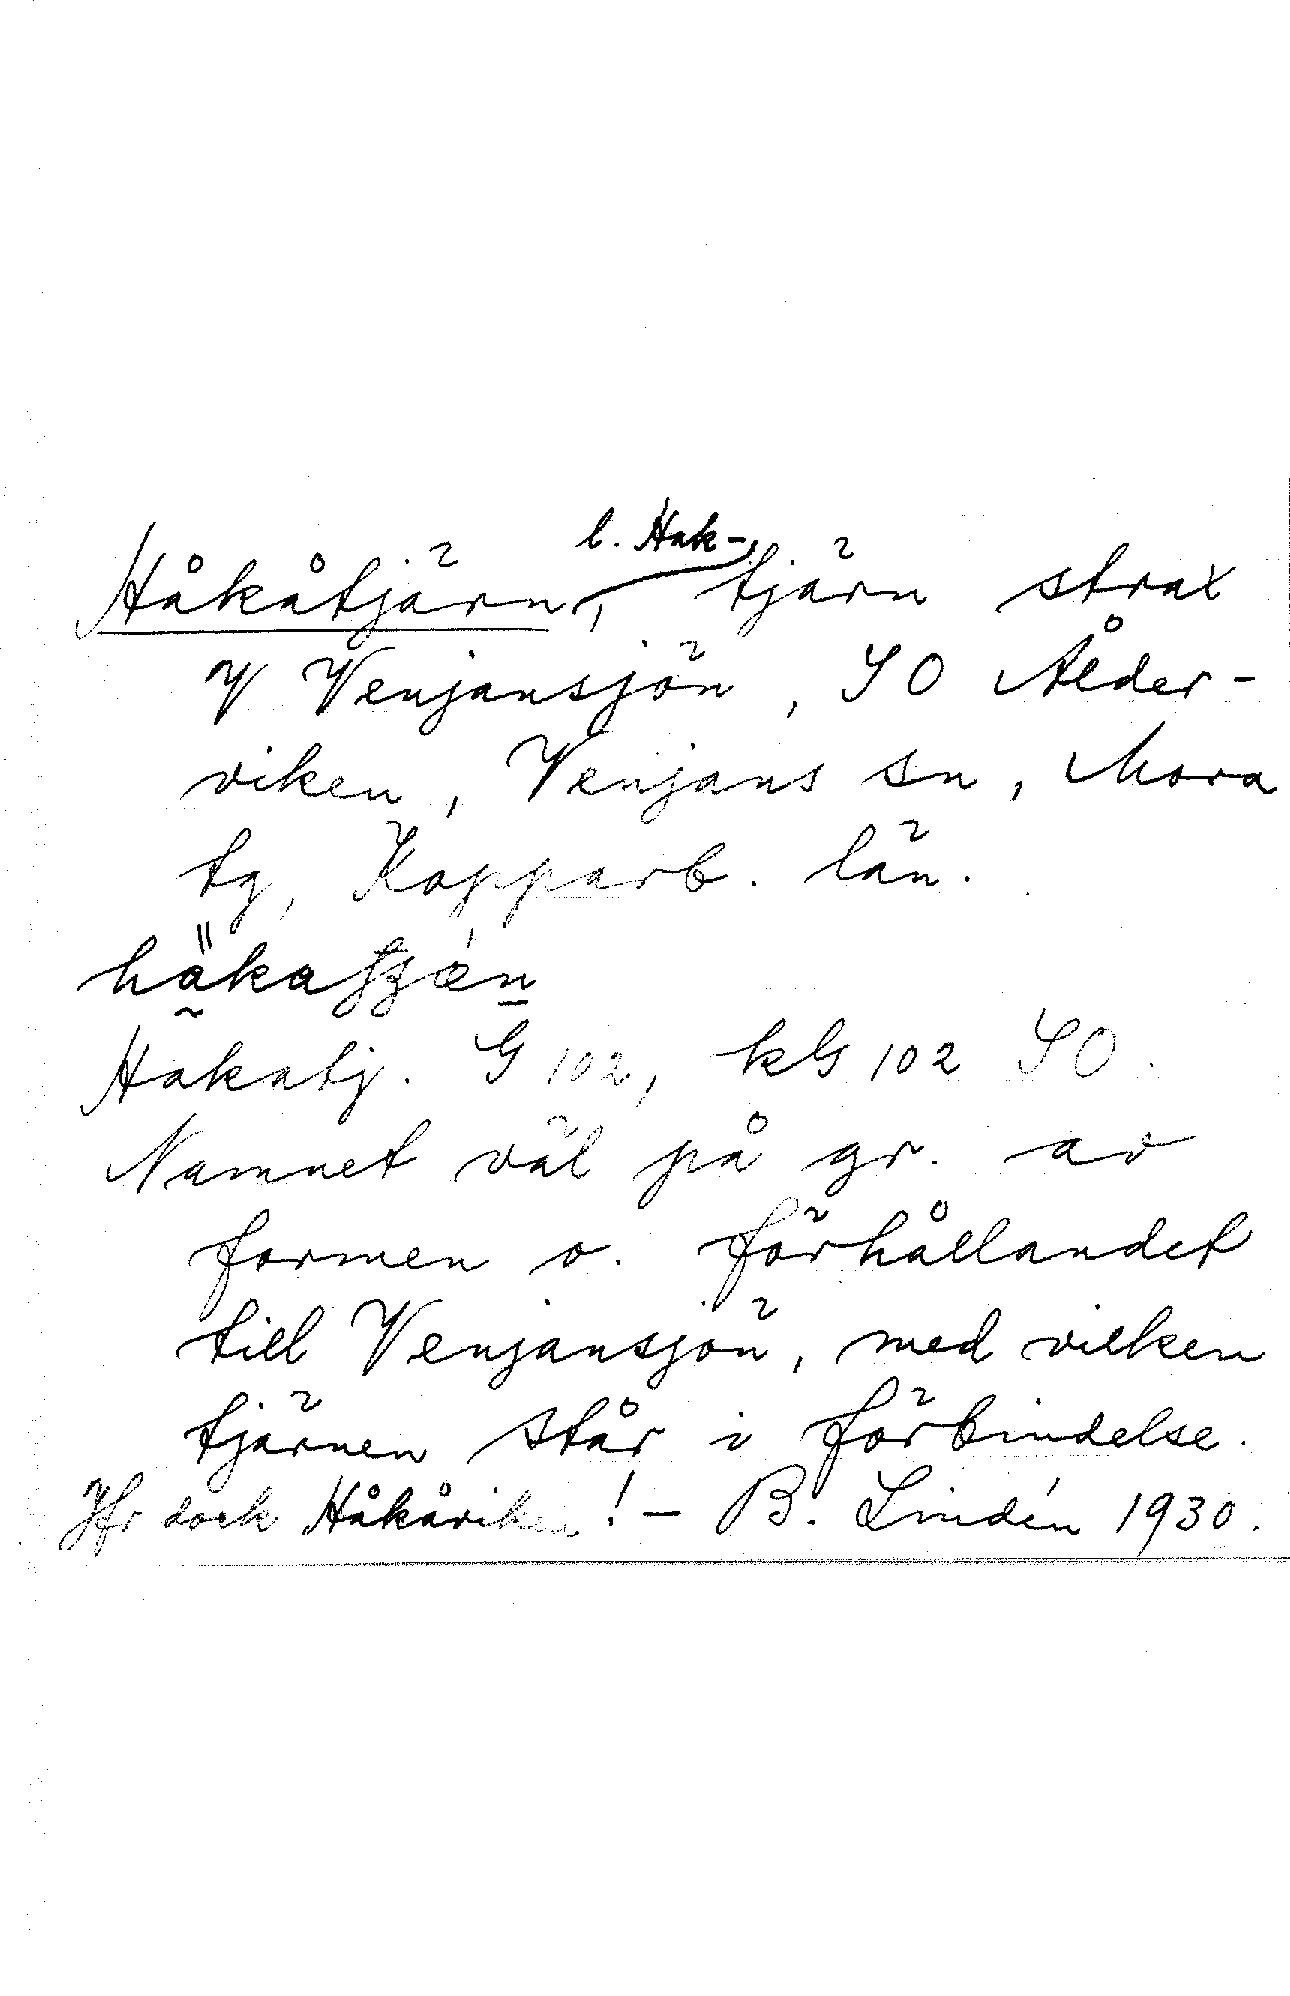 Håkåtjärn, l. Hak- tjärn strax
V Venjansjön, SO Ålder-
viken, Venjans sn, Mora
tg, Kopparb. län.
Hakatj. G 102, kG 102 SO.
Namnet väl på gr. av
formen o. förhållandet
till Venjansjön, med vilken
tjärnen står i förbindelse.
Jfr dock Håkåviken! – B. Lindén 1930.